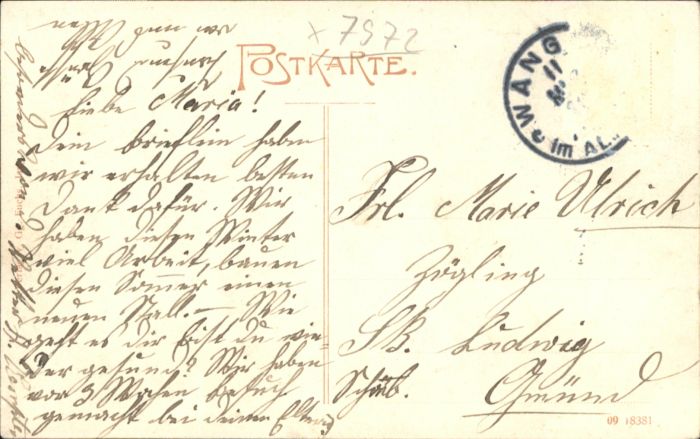 x 7972
POSTKARTE.
WANG
11
im AL
Liebe Maria!
Dein Brieflein haben
wir erhalten besten
Dank dafür. Wir
haben diesen Winter
viel Arbeit, bauen
diesen Sommer einen
neuen Stall. — Wie
geht es dir bist du wie-
der gesund? Wir haben
vor 3 Wochen Besuch
gemacht bei deinen Eltern
Frl. Marie Ulrich
Zögling
St. Ludwig
Schwäb. Gmünd
09 18381